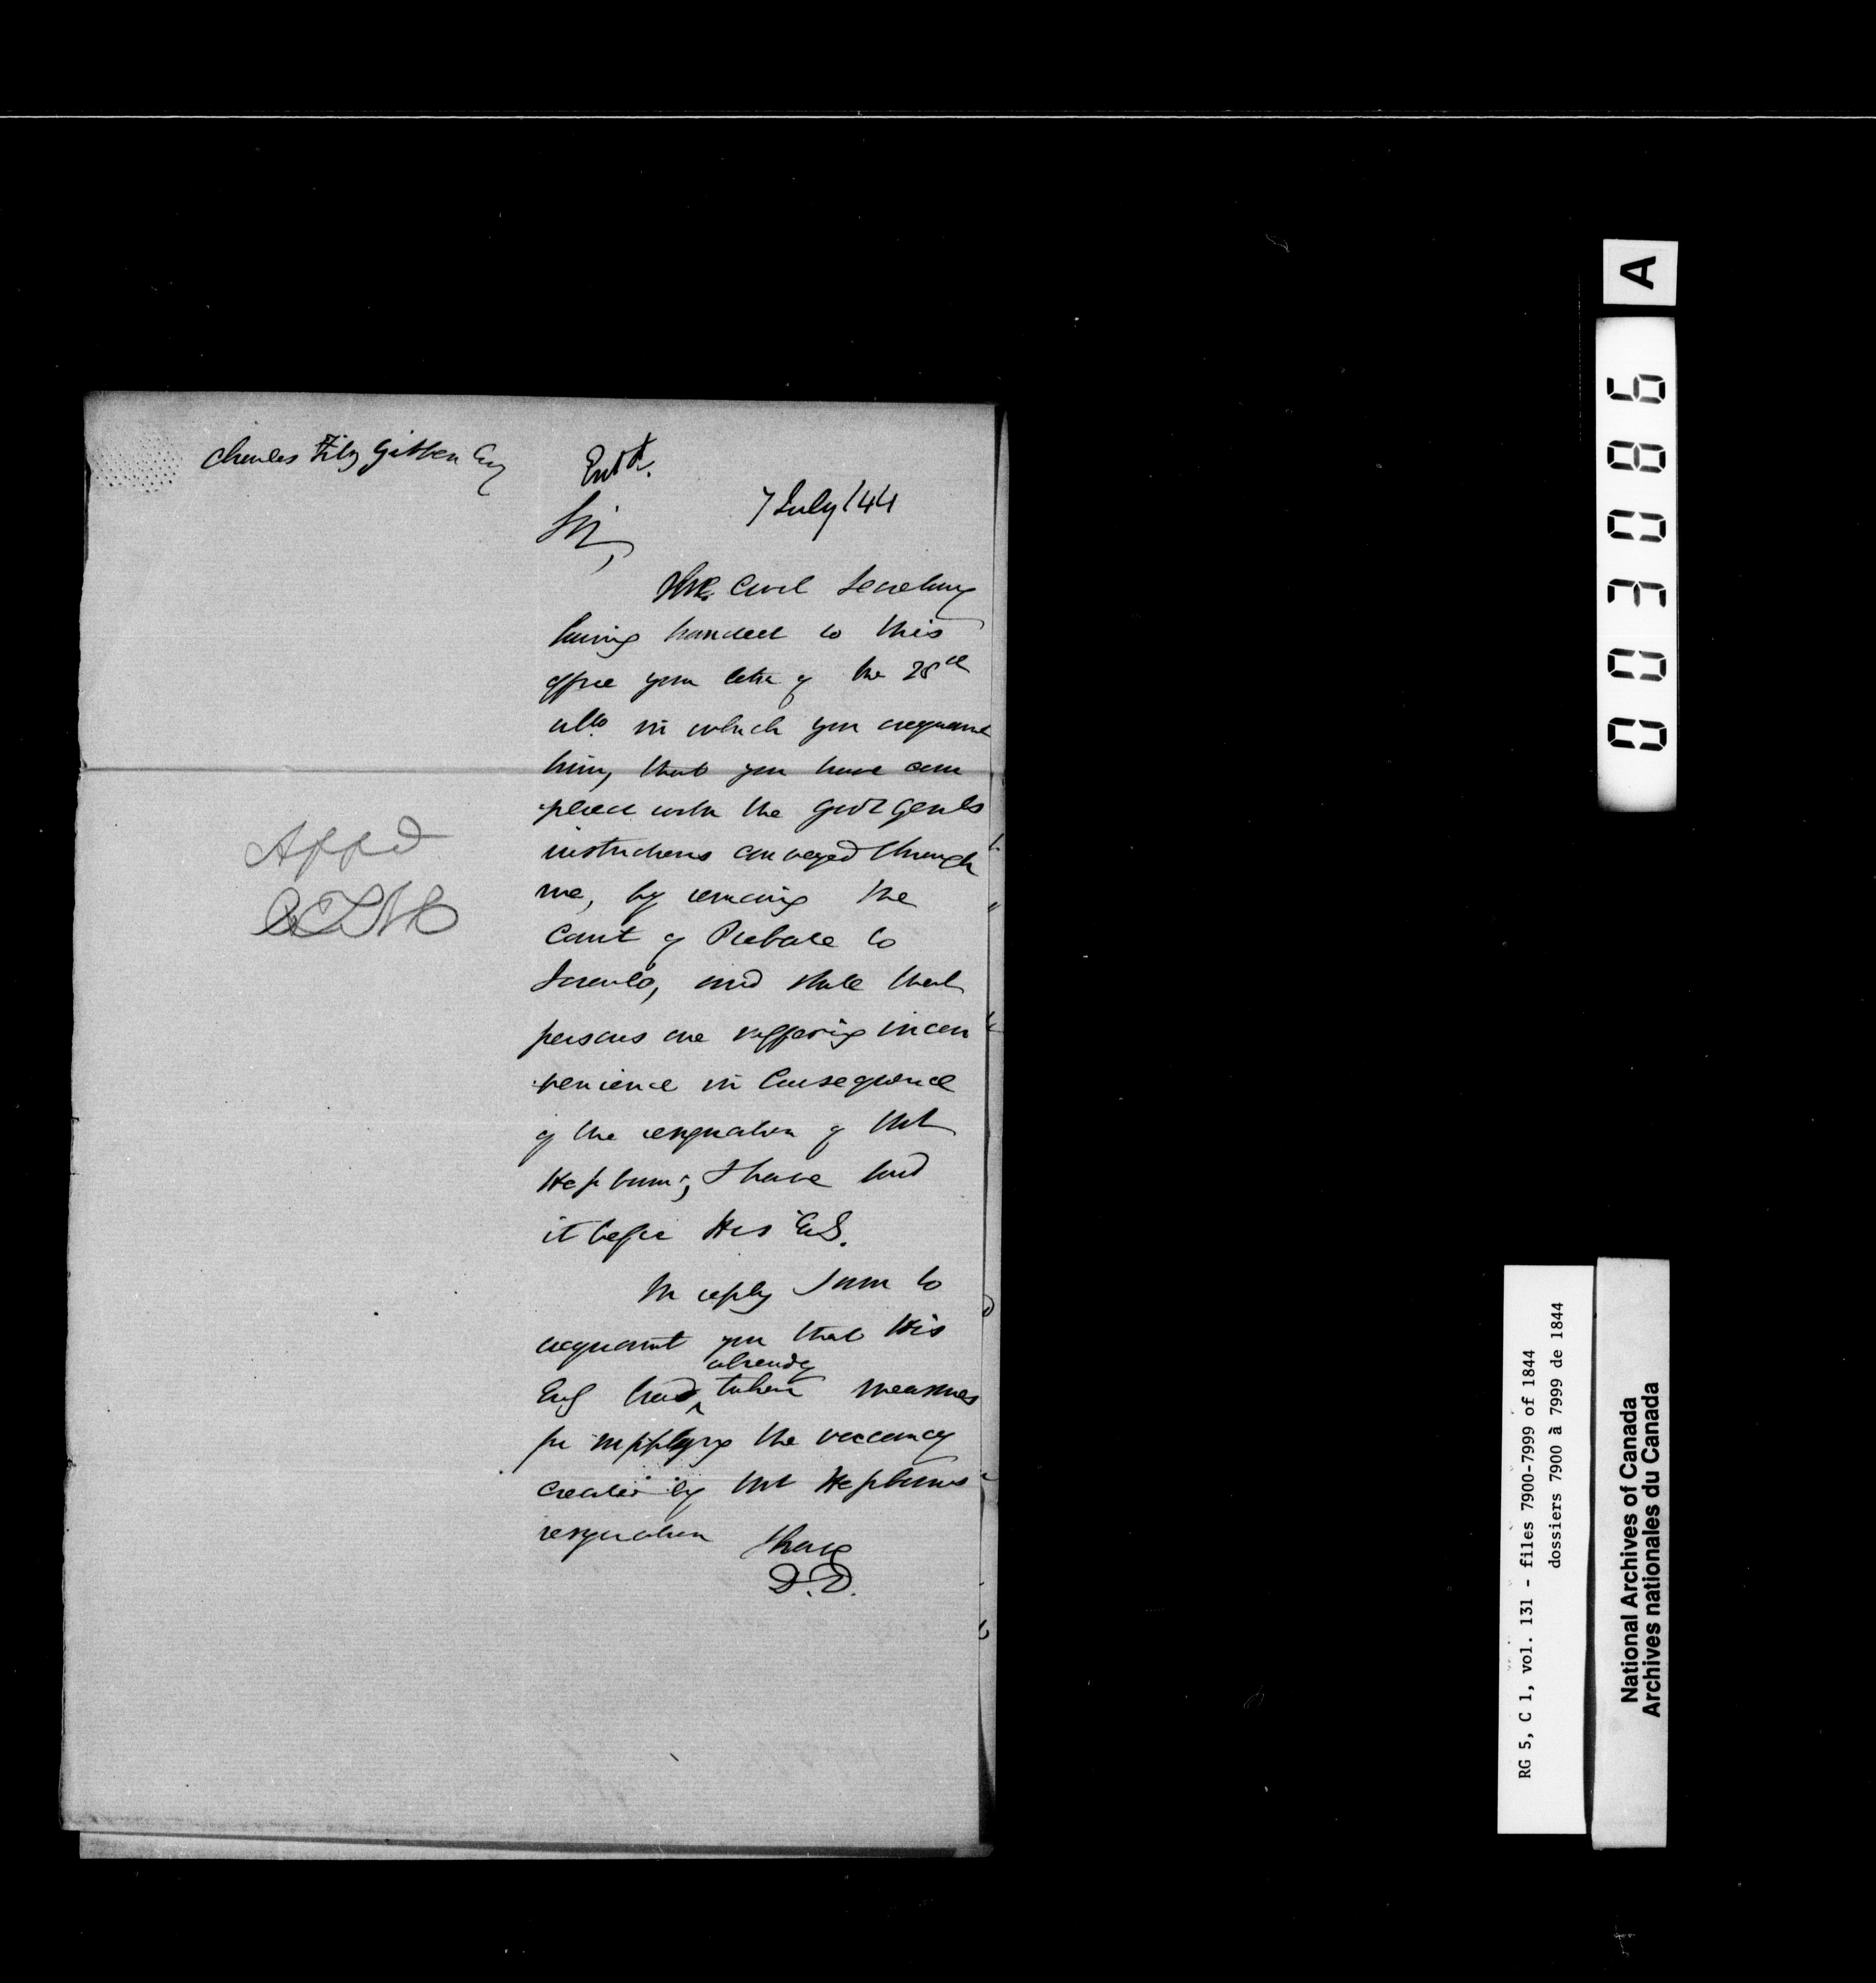 Charles Fitz Gibbon Esq
Entd.
7 July /44
Sir,
The Civil Secretary
having handed to this
office your letter of the 28th
ulto. in which you acquaint
him, that you have com
plied with the Govr Genls
instructions conveyed through
me, by removing the
Court of Probate to
Toronto, and state that
persons are suffering incon
venience in Consequence
of the resignation of Mr
Hepburn; I have laid
it before His Exy.
In reply I am to
acquaint you that His
already
Exy had taken measures
for supplying the vacancy
created by Mr Hepburns
resignation I have
D.D.
Appd
A
003086
RG 5, C 1, vol. 131 - files 7900-7999 of 1844
dossiers 7900 à 7999 de 1844
National Archives of Canada
Archives nationales du Canada